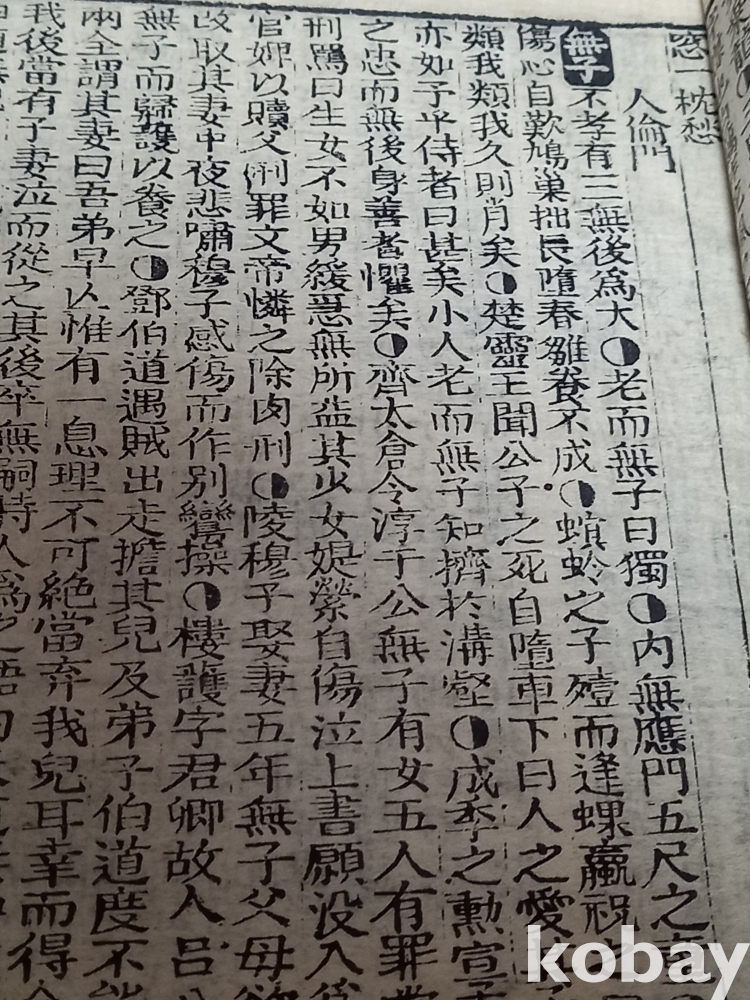 窓一枕愁
人倫門
無子 不孝有三無後爲大◑老而無子曰獨◑内無應門五尺之
傷心自歎鳩巢拙長墮春雛養不成◑螟蛉之子殪而逢蜾蠃祝
類我類我久則肖矣◑楚靈王聞公子之死自墮車下曰人之愛
亦如予乎侍者曰甚矣小人老而無子知擠於溝壑◑成季之勲宣
之忠而無後爲善者懼矣◑齊太倉令淳于公無子有女五人有罪當
刑罵曰生女不如男緩急無所益其少女媞縈自傷泣上書願没入爲
官婢以贖父刑罪文帝憐之除肉刑◑陵穆子娶妻五年無子父母欲
改取其妻中夜悲嘯穆子感傷而作别鸞操◑樓護字君卿故人呂
無子而歸護以養之◑鄧伯道遇賊出走擔其兒及弟子伯道度不能
兩全謂其妻曰吾弟早亾惟有一息理不可絶當弃我兒耳幸而得
我後當有子妻泣而從之其後卒無嗣時人爲之語曰
kobay